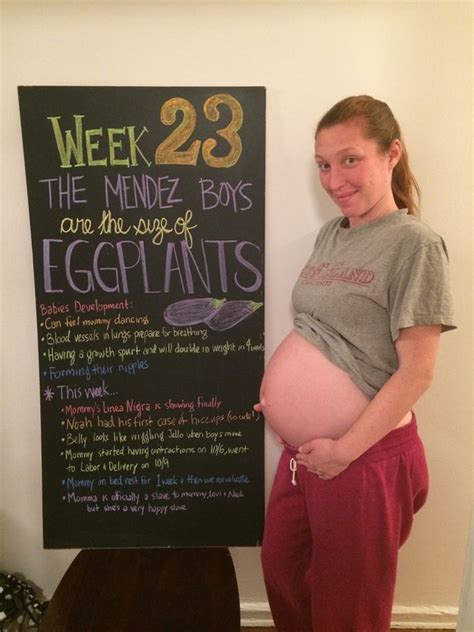 WEEK 23
THE MENDEZ BOYS
are the size of
EGGPLANTS
Babies Development:
• Can feel mommy dancing
• Blood vessels in lungs prepare for breathing
• Having a growth spurt and will double in weight in 4 weeks
• Forming their nipples
* This week...
• Mommy's Linea Nigra is showing finally
• Noah had his first case of hiccups (so cute!)
• Belly looks like wiggling Jello when boys move
• Mommy started having contractions on 10/6, went
to Labor & Delivery on 10/9
• Mommy on bed rest for 1 week & then we reevaluate
• Momma is officially a slave to mommy, Levi & Noah
but she's a very happy slave